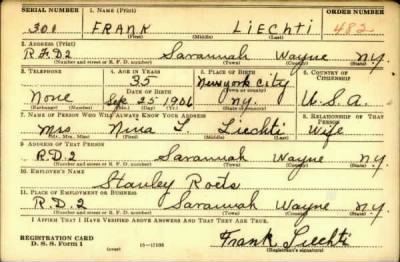 SERIAL NUMBER 1. NAME (Print) ORDER NUMBER
301 FRANK LIECHTI 482
(First) (Middle) (Last)
2. ADDRESS (Print)
R.F.D2 Savannah Wayne N.Y.
(Number and street or R. F. D. number) (Town) (County) (State)
3. TELEPHONE 4. AGE IN YEARS 5. PLACE OF BIRTH 6. COUNTRY OF CITIZENSHIP
35 New york City
DATE OF BIRTH (Town or county)
None Sep. 25 1906 N.Y. U.S.A.
(Exchange) (Number) (Mo.) (Day) (Yr.) (State or country)
7. NAME OF PERSON WHO WILL ALWAYS KNOW YOUR ADDRESS 8. RELATIONSHIP OF THAT PERSON
Mrs. Nina L Liechti Wife
(Mr., Mrs., Miss) (First) (Middle) (Last)
9. ADDRESS OF THAT PERSON
R.D.2 Savannah Wayne N.Y.
(Number and street or R. F. D. number) (Town) (County) (State)
10. EMPLOYER'S NAME
Stanley Roets
11. PLACE OF EMPLOYMENT OR BUSINESS
R.D. 2 Savannah Wayne N.Y.
(Number and street or R. F. D. number) (Town) (County) (State)
I AFFIRM THAT I HAVE VERIFIED ABOVE ANSWERS AND THAT THEY ARE TRUE.
REGISTRATION CARD
D. S. S. Form 1 (over) Frank Liechti
(Registrant's signature)